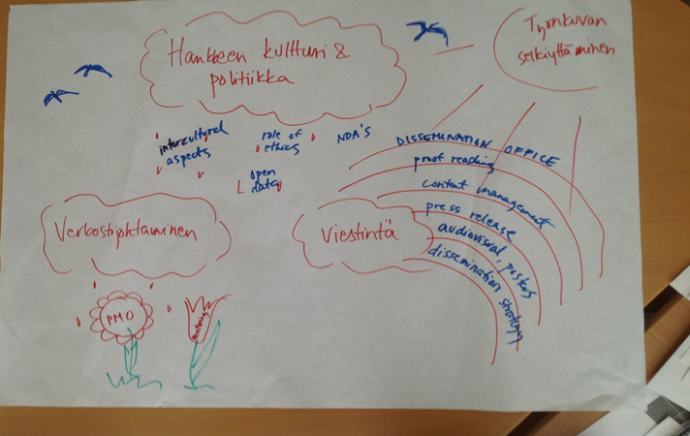 Hankkeen kulttuuri &
politiikka
Työnkuvan
selkiyttäminen
intercultural
aspects
role of
ethics
NDA's
open
data
DISSEMINATION OFFICE
proof reading
content management
press release
audiovisual, posters
dissemination strategy
Verkostojohtaminen
Viestintä
PMO